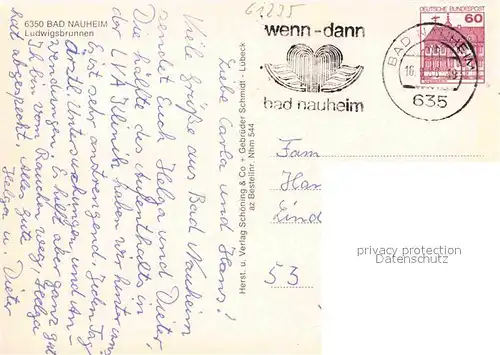 6350 BAD NAUHEIM
Ludwigsbrunnen
61235
wenn-dann
bad nauheim
DEUTSCHE BUNDESPOST
60
BAD NAUHEIM
16.
635
Liebe Carla und Hans!
Viele Grüße aus Bad Nauheim
sendet Euch Helga und Dieter,
Die hälfte des Aufenthalts in
der LVA Klinik haben wir hinter uns.
Es ist sehr anstrengend. Jeden Tag
ärztl. Untersuchungen und An-
wendungen. Es hilft aber ganz gut
Ich bin vom Rauchen weg, Helga
hat abgespeckt, Alles gute
Helga u. Dieter
Herst. u. Verlag Schöning & Co + Gebrüder Schmidt - Lübeck
az Bestellnr. Nhm S44
Fam
Han
Lind
53
privacy protection
AnsichtskartenCenter.de